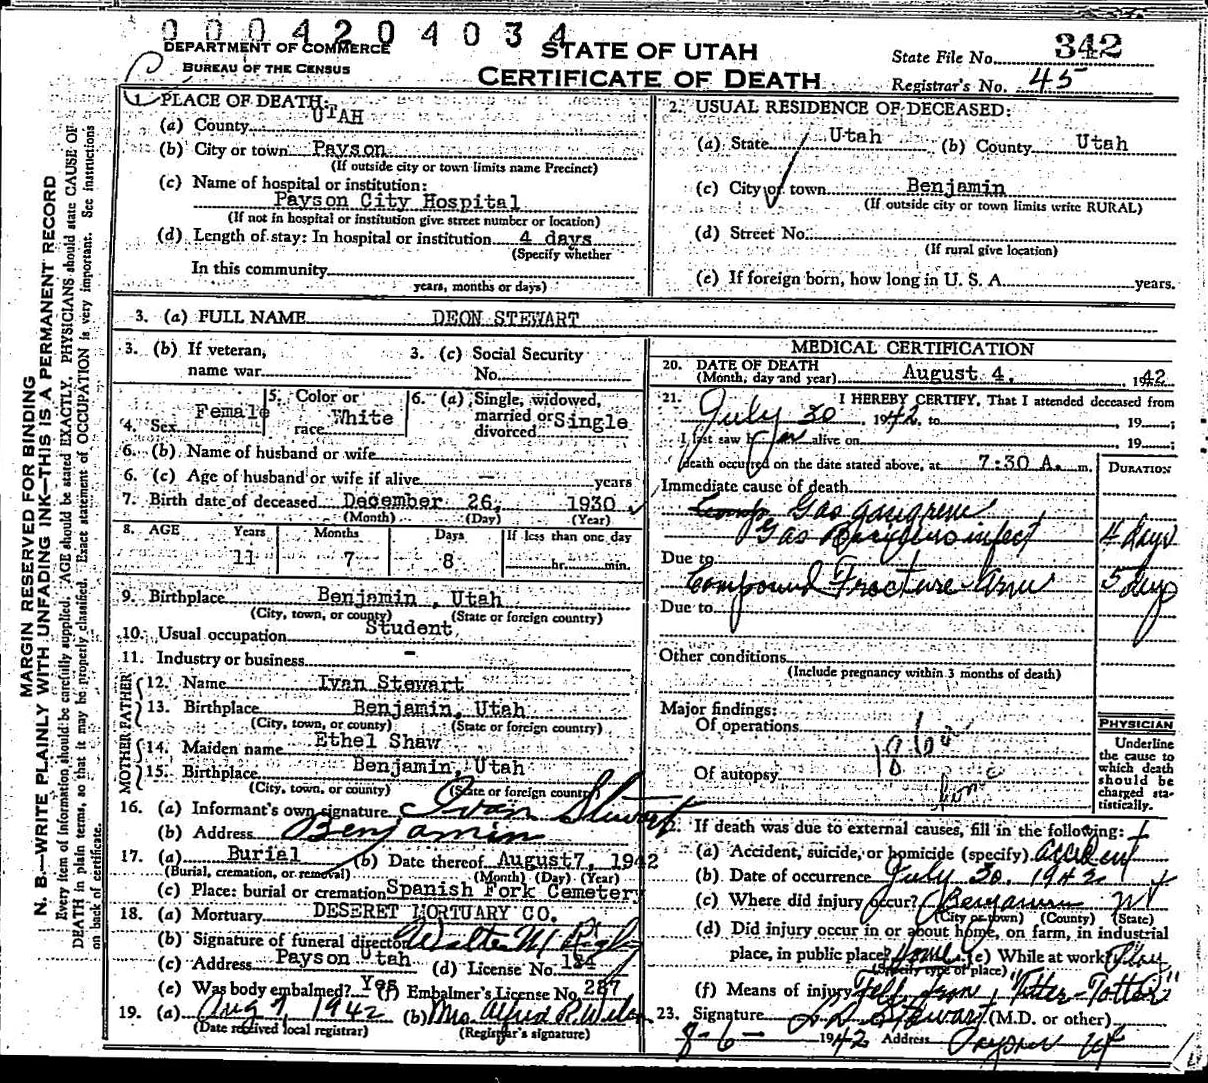 0004204034
DEPARTMENT OF COMMERCE
BUREAU OF THE CENSUS
STATE OF UTAH
CERTIFICATE OF DEATH
State File No. 342
Registrar's No. 45
MARGIN RESERVED FOR BINDING
N. B.—WRITE PLAINLY WITH UNFADING INK—THIS IS A PERMANENT RECORD
Every item of information should be carefully supplied. AGE should be stated EXACTLY. PHYSICIANS should state CAUSE OF
DEATH in plain terms, so that it may be properly classified. Exact statement of OCCUPATION is very important. See instructions
on back of certificate.
1. PLACE OF DEATH:
(a) County UTAH
(b) City or town Payson
(If outside city or town limits name Precinct)
(c) Name of hospital or institution:
Payson City Hospital
(If not in hospital or institution give street number or location)
(d) Length of stay: In hospital or institution 4 days
(Specify whether
In this community
years, months or days)
2. USUAL RESIDENCE OF DECEASED:
(a) State Utah (b) County Utah
(c) City or town Benjamin
(If outside city or town limits write RURAL)
(d) Street No.
(If rural give location)
(e) If foreign born, how long in U. S. A. years.
3. (a) FULL NAME DEON STEWART
3. (b) If veteran,
name war
3. (c) Social Security
No.
4. Sex Female
5. Color or
race White
6. (a) Single, widowed,
married or
divorced Single
6. (b) Name of husband or wife
6. (c) Age of husband or wife if alive — years
7. Birth date of deceased December 26, 1930
(Month) (Day) (Year)
8. AGE Years Months Days If less than one day
11 7 8 hr. min.
9. Birthplace Benjamin, Utah
(City, town, or county) (State or foreign country)
10. Usual occupation Student
11. Industry or business -
FATHER
12. Name Ivan Stewart
13. Birthplace Benjamin, Utah
(City, town, or county) (State or foreign country)
MOTHER
14. Maiden name Ethel Shaw
15. Birthplace Benjamin, Utah
(City, town, or county) (State or foreign country)
16. (a) Informant's own signature Ivan Stewart
(b) Address Benjamin
17. (a) Burial (b) Date thereof August 7, 1942
(Burial, cremation, or removal) (Month) (Day) (Year)
(c) Place: burial or cremation Spanish Fork Cemetery
18. (a) Mortuary DESERET MORTUARY CO.
(b) Signature of funeral director Walter
(c) Address Payson Utah (d) License No.
(e) Was body embalmed? Yes (f) Embalmer's License No. 237
19. (a) Aug 7, 1942 (b) Mrs Alfred R.
(Date received local registrar) (Registrar's signature)
MEDICAL CERTIFICATION
20. DATE OF DEATH
(Month, day and year) August 4, 1942
21. I HEREBY CERTIFY, That I attended deceased from
July 30, 1942, to 19 ;
I last saw h alive on 19 ;
death occurred on the date stated above, at 7:30 A. m.
DURATION
Immediate cause of death
Gas gangrene
Gas infect 4 days
Due to
Compound Fracture Arm 5 days
Due to
Other conditions
(Include pregnancy within 3 months of death)
Major findings:
Of operations
Of autopsy
PHYSICIAN
Underline
the cause to
which death
should be
charged sta-
tistically.
22. If death was due to external causes, fill in the following:
(a) Accident, suicide, or homicide (specify) accident
(b) Date of occurrence July 30, 1942
(c) Where did injury occur? Benjamin Ut
(City or town) (County) (State)
(d) Did injury occur in or about home, on farm, in industrial
place, in public place? Home (e) While at work? Play
(Specify type of place)
(f) Means of injury Fell from "Titter-Totter"
23. Signature Stewart (M.D. or other)
8-6- 1942 Address Payson Ut